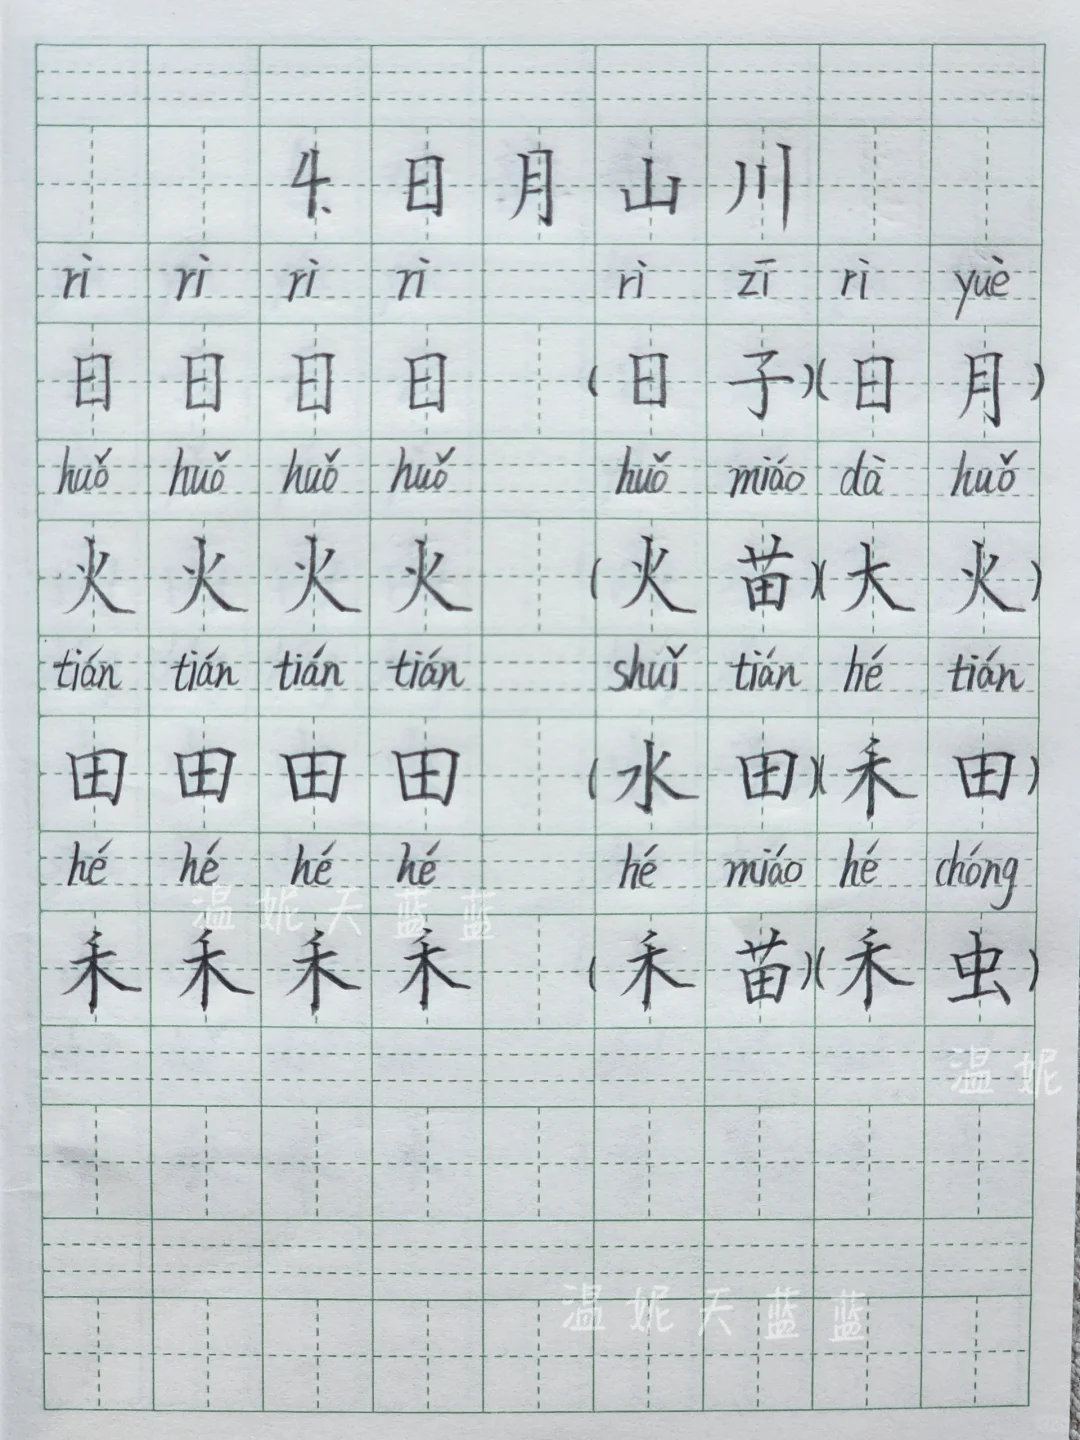 4. 日月山川
rì rì rì rì rì zī rì yuè
日 日 日 日 (日 子)(日 月)
huǒ huǒ huǒ huǒ huǒ miáo dà huǒ
火 火 火 火 (火 苗)(大 火)
tián tián tián tián shuǐ tián hé tián
田 田 田 田 (水 田)(禾 田)
hé hé hé hé hé miáo hé chóng
温妮天蓝蓝
禾 禾 禾 禾 (禾 苗)(禾 虫)
温妮
温妮天蓝蓝